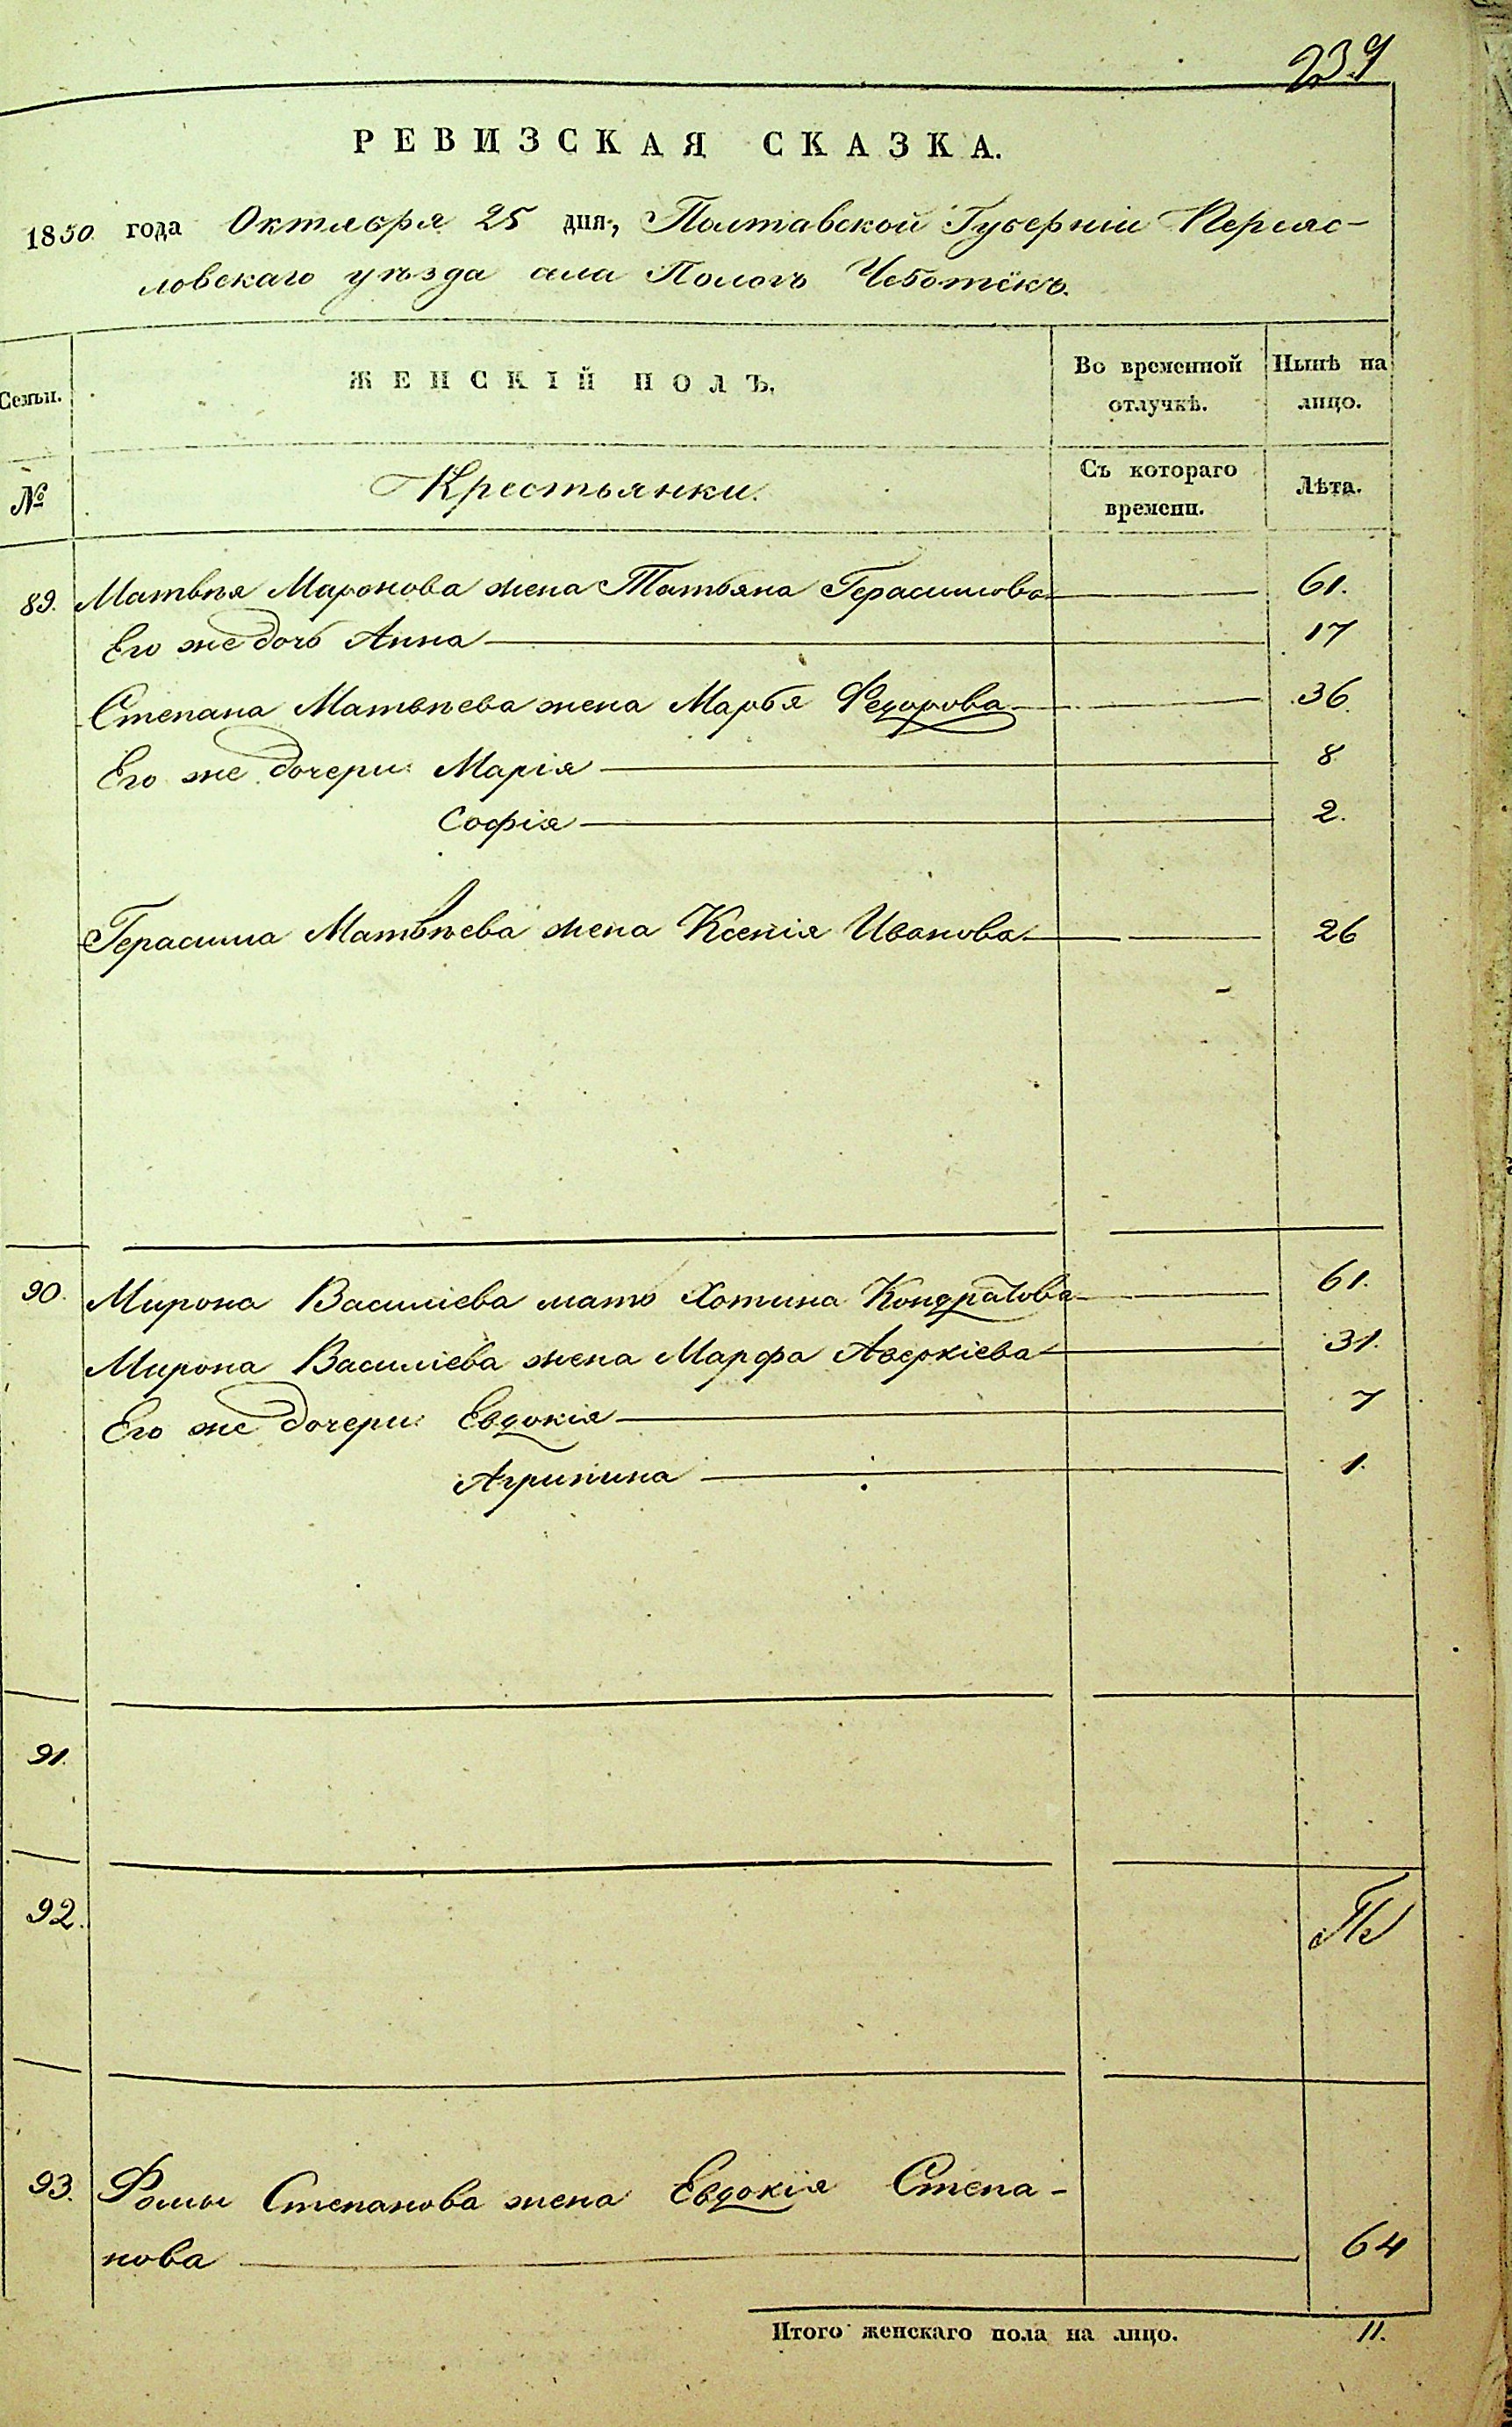 239
РЕВИЗСКАЯ СКАЗКА.
1850 года Октября 25 дня, Полтавской Губерніи Переяс-
ловскаго уѣзда села Пологъ Чеботёкъ.
Семьи. ЖЕНСКІЙ ПОЛЪ. Во временной отлучкѣ. Нынѣ на лицо.
№ Крестьянки. Съ котораго времени. Лѣта.
89. Матвѣя Миронова жена Татьяна Герасимова 61.
Его же дочь Анна 17
Степана Матвѣева жена Марья Федорова 36
Его же дочери: Марія 8
Софія 2.
Герасима Матвѣева жена Ксенія Иванова 26
90. Мирона Василіева мать Хотина Кондратова 61.
Мирона Василіева жена Марфа Аверкіева 31.
Его же дочери: Евдокія 7
Агрипина 1.
91.
92.
93. Фомы Степанова жена Евдокія Степа-
нова 64
Итого женскаго пола на лицо. 11.